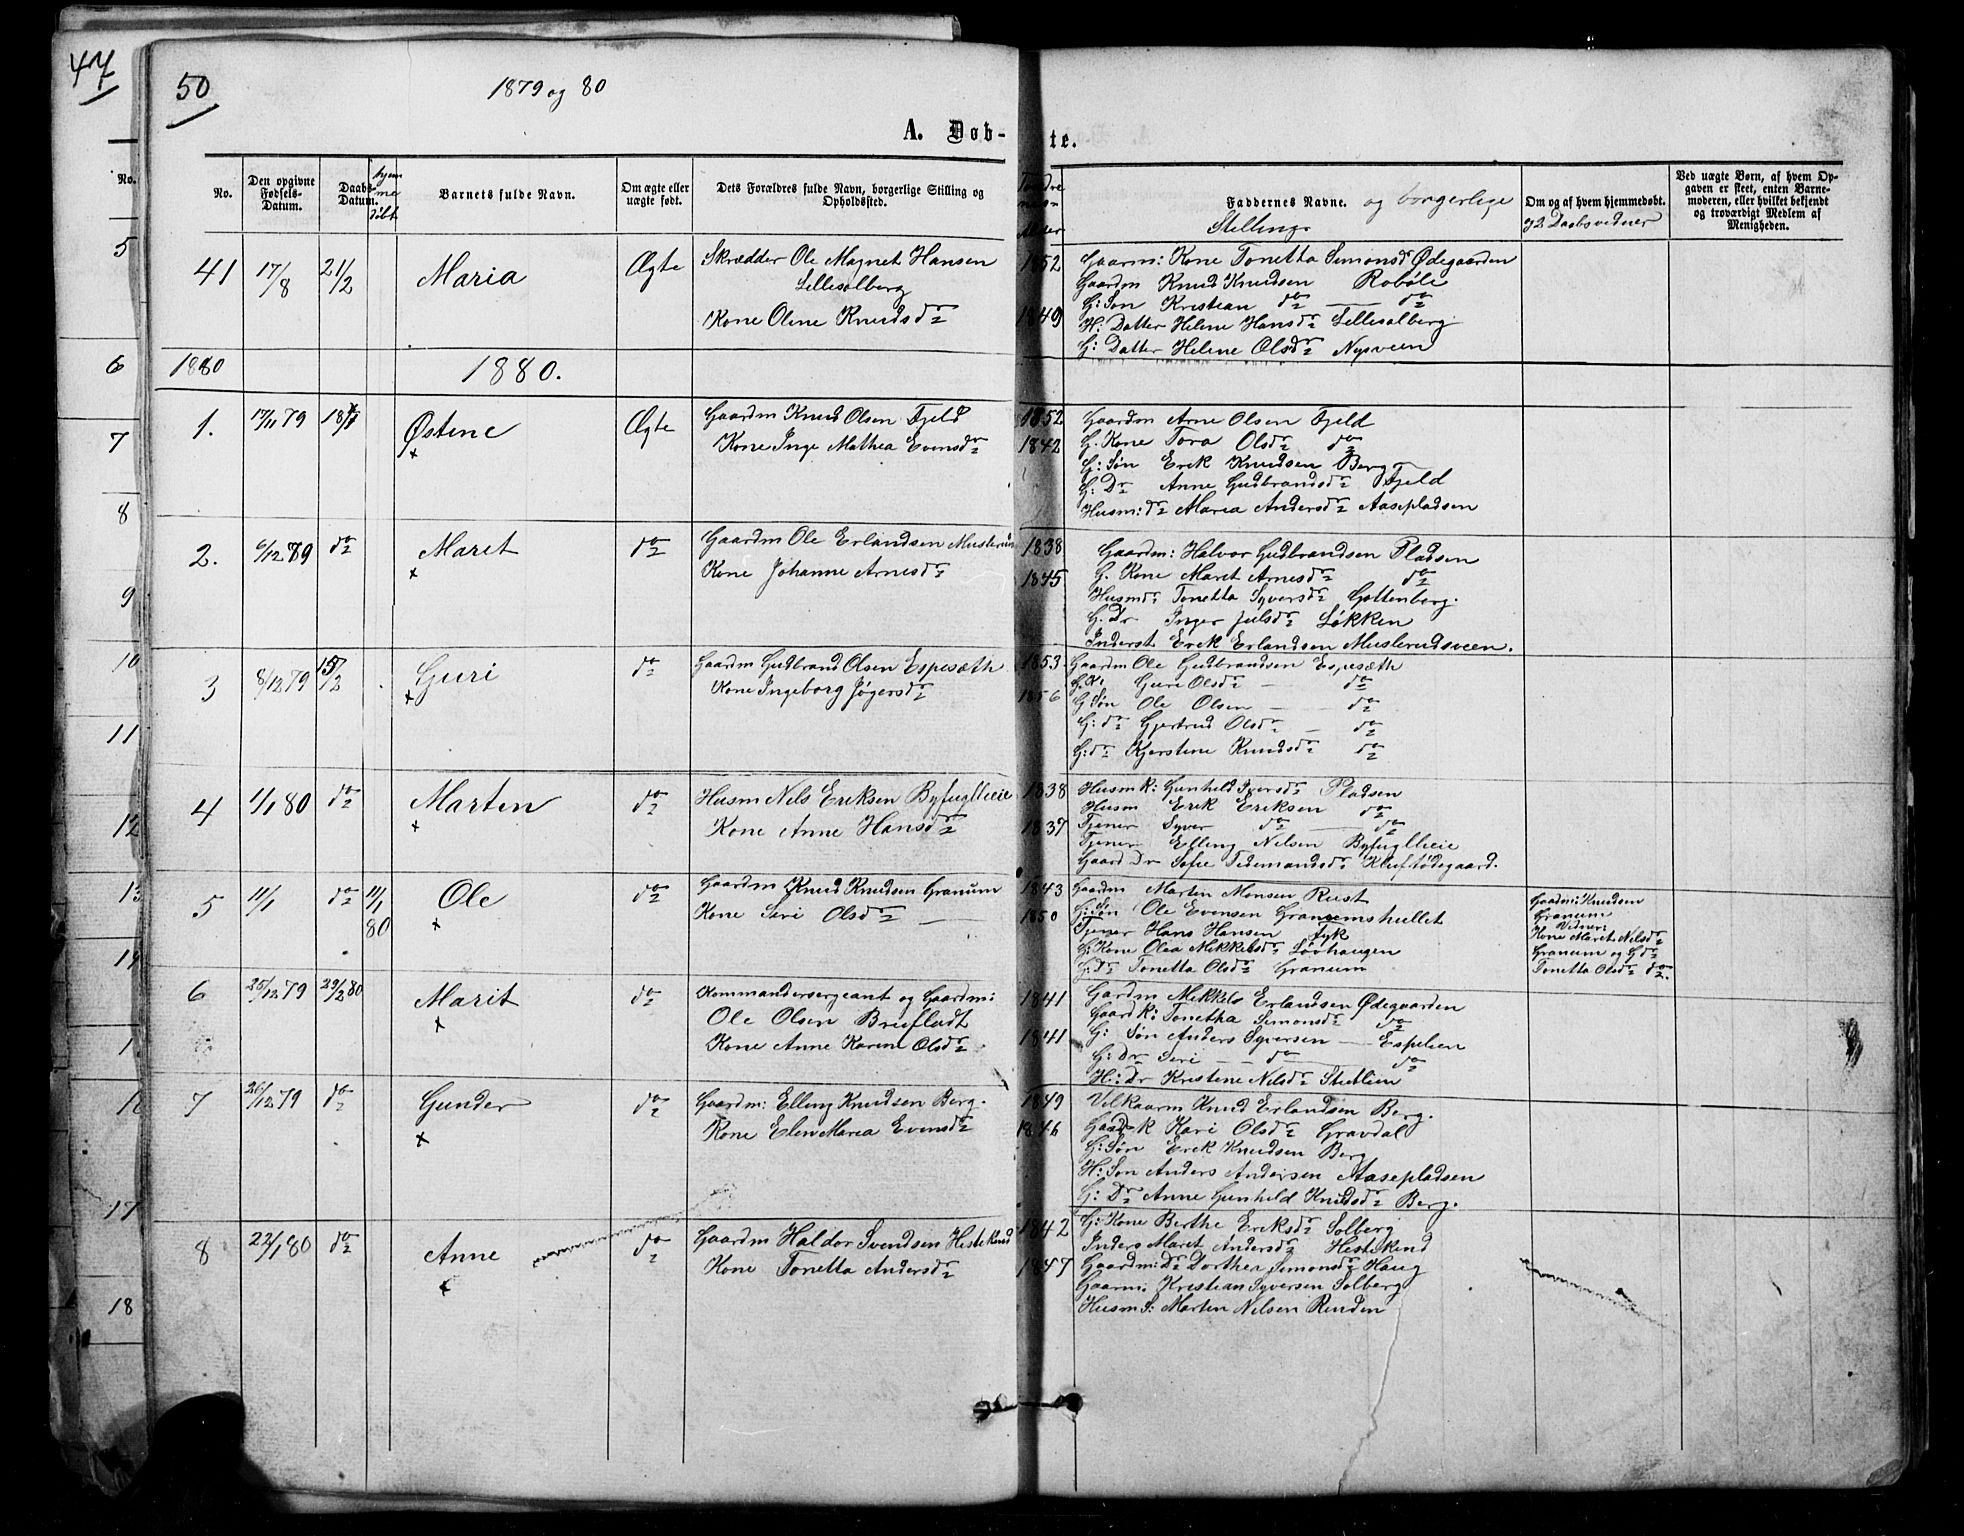 47
50
1879 og 80
A. Døb-
te.
No.
No.
Den opgivne Fødsels-Datum.
Daabs-Datum.
hjemmedøbt
Barnets fulde Navn.
Om ægte eller uægte født.
Dets Forældres fulde Navn, borgerlige Stilling og Opholdssted.
Faddernes Navne. og borgerlige
Stilling
Om og af hvem hjemmedøbt.
og 2 Daabsvidner
Ved uægte Børn, af hvem Opgaven er skeet, enten Barnemoderen, eller hvilket bekjendt og troværdigt Medlem af Menigheden.
5
6
7
8
9
10
11
12
13
14
17
18
41 17/8 21/2 Maria Ægte
Skrædder Ole Magnet Hansen
Lillesolberg
Kone Oline Knudsdr
1852
1849
Gaarm: Kone Tonetta Simonsdr Ødegaarden
Gaardm Knud Knudsen Robøle
G: Søn Kristian do do
H: Datter Helene Hansdr Lillesolberg
G: Datter Helene Olsdr Nysveen
1880 1880.
1. 17/11 79 18/1 Østine x Ægte
Gaardm Knud Olsen Fjeld
Kone Inge Mathea Evensdr
1852
1842
Gaardm Arne Olsen Fjeld
G. Kone Tora Olsdr do
G: Søn Erik Knudsen Berg
G: Dr Anne Gudbrandsdr Fjeld
Husm: dr Maria Andersdr Aasepladsen
2. 6/12 79 do Marit x do
Gaardm Ole Erlandsen Muslerud
Kone Johanne Arnesdr
1838
1845
Gaardm: Halvor Gudbrandsen Pladsen
G. Kone Marit Arnesdr do
Husmdr Tonetta Syversdr Gottenberg.
G. Dr Inger Julsdr Løkken
Inderst Erik Erlandsen Muslerudsveen.
3 8/12 79 15/2 Guri x do
Gaardm Gudbrand Olsen Espesæth
Kone Ingeborg Jøgersdr
1853
1856
Gaardm Ole Gudbrandsen Espesæth
G.K: Guri Olsdr do
G Søn Ole Olsen do
G: dr Gjertrud Olsdr do
G: dr Kjerstine Knudsdr do
4 1/1 80 do Martin x do
Husm Nils Eriksen Byfuglleie
Kone Anne Hansdr
1838
1837
Husm k: Gunhild Iversdr Pladsen
Husm Erik Eriksen do
Tjener Syver do do
Tjener Elling Nilsen Byfuglleie
Gaard Dr Sofie Tidemandsdr Kluftødegaard.
5 11/1 do 11/1 80 Ole x do
Gaardm Knud Knudsen Granum
Kone Siri Olsdr
1843
1850
Gaardm Martin Monsen Rust
G: Søn Ole Evensen Granumshullet
Tjener Hans Hansen Fyk
G: Kone Olea Mikkelsdr Løvhaugen
G: Dr Tonetta Olsdr Granum
Gaardm: Knudsen
Granum
Vidner:
Kone Marit Nilsdr
Granum og G dr
Tonetta Olsdr do.
6 25/12 79 29/2 80 Marit x do
Kommandersergeant og Gaardm:
Ole Olsen Brufladt
Kone Anne Karine Olsdr
1841
1841
Gardm Mikkels Erlandsen Ødegaarden
Gaard K: Tonetha Simonsdr do
G: Søn Anders Syversen Espelien
G: Dr Siri do do
H: Dr Kristine Nilsdr Stublien
7 26/12 79 do Gunder x do
Gaardm: Elling Knudsen Berg.
Kone Elen Maria Evensdr
1849
1846
Vilkaarm Knud Erlandsen Berg.
Gaard K Kari Olsdr Gravdal
G: Søn Erik Knudsen Berg
H: Søn Anders Andersen Aasepladsen
G: Dr Anne Gunhild Knudsdr Berg.
8 22/1 80 do Anne x do
Gaardm Haldor Svendsen Hestekind
Kone Tonetta Andersdr
1842
1847
G: Kone Berthe Eriksdr Solberg
Inders Marit Andersdr Hestekind
Gaardm: Dr Dorthea Simonsdr Haug
Gaarm. Kristian Syversen Solberg
Husm S: Martin Nilsen Rinden